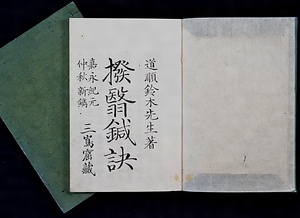 道順鈴木先生著
撥翳鍼訣
嘉永紀元
仲秋新鐫
三寫齋藏